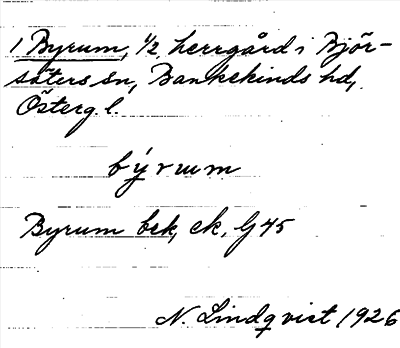 1 Byrum, 1/2 herrgård i Björ-
säters sn, Bankekinds hd,
Österg. l.
býrum
Byrum bek, ek, G 45
N. Lindqvist 1926